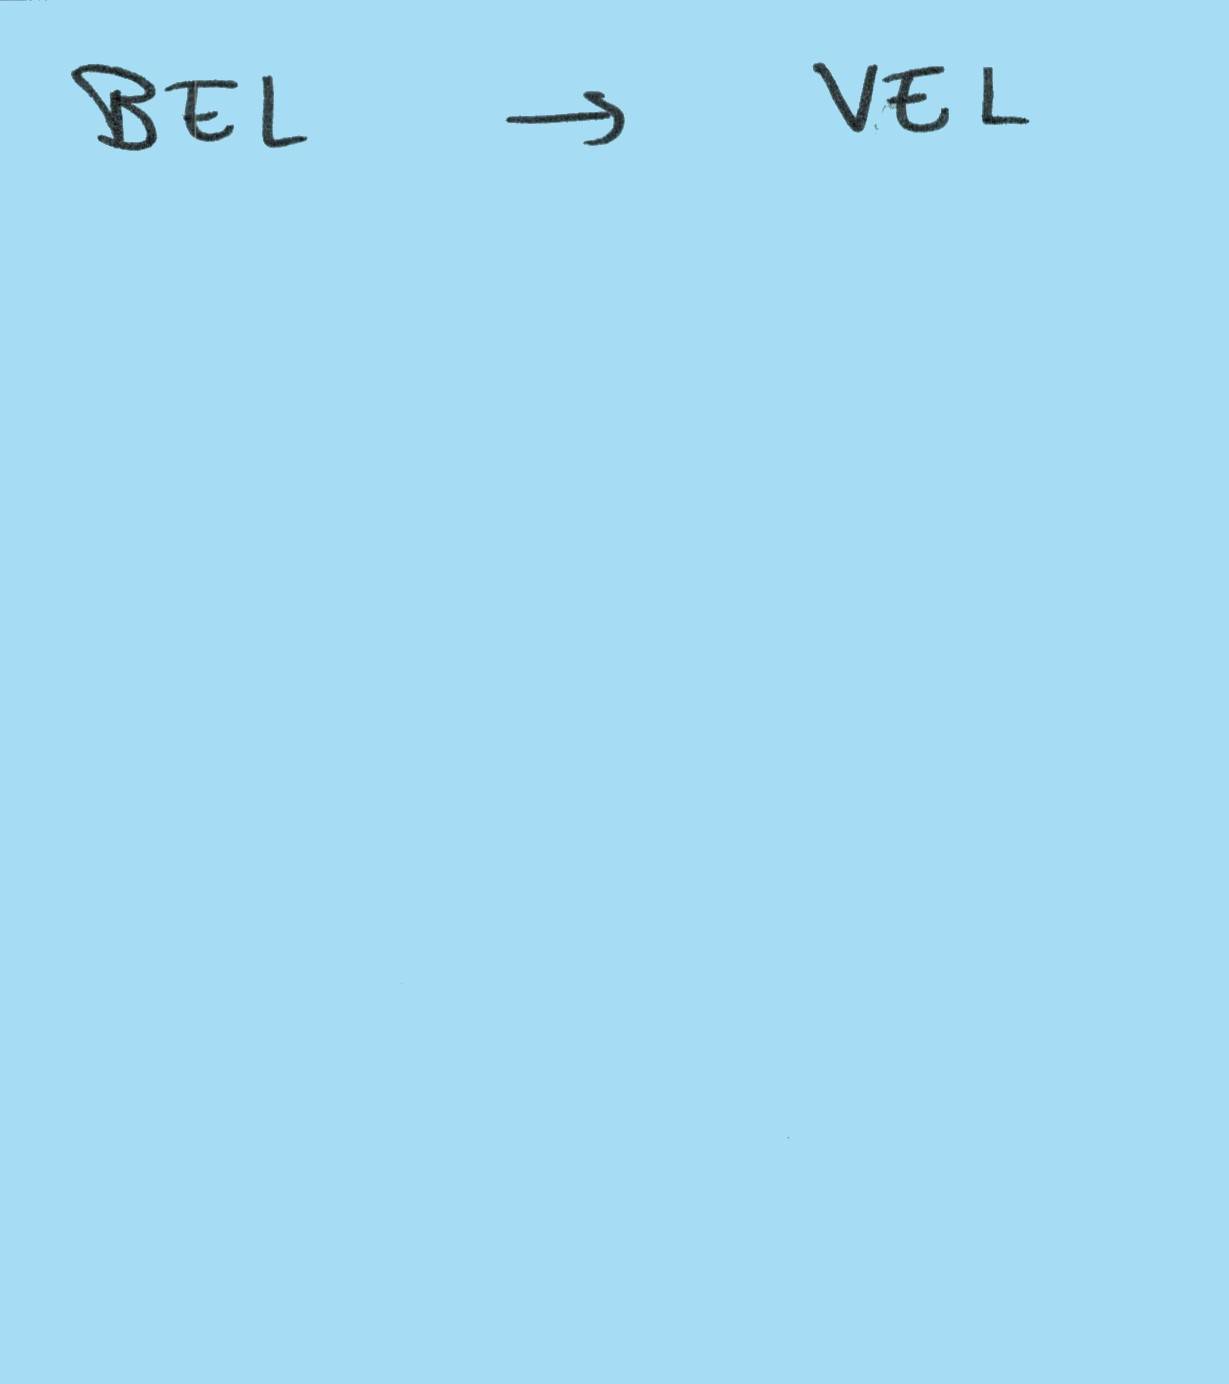 BEL → VEL